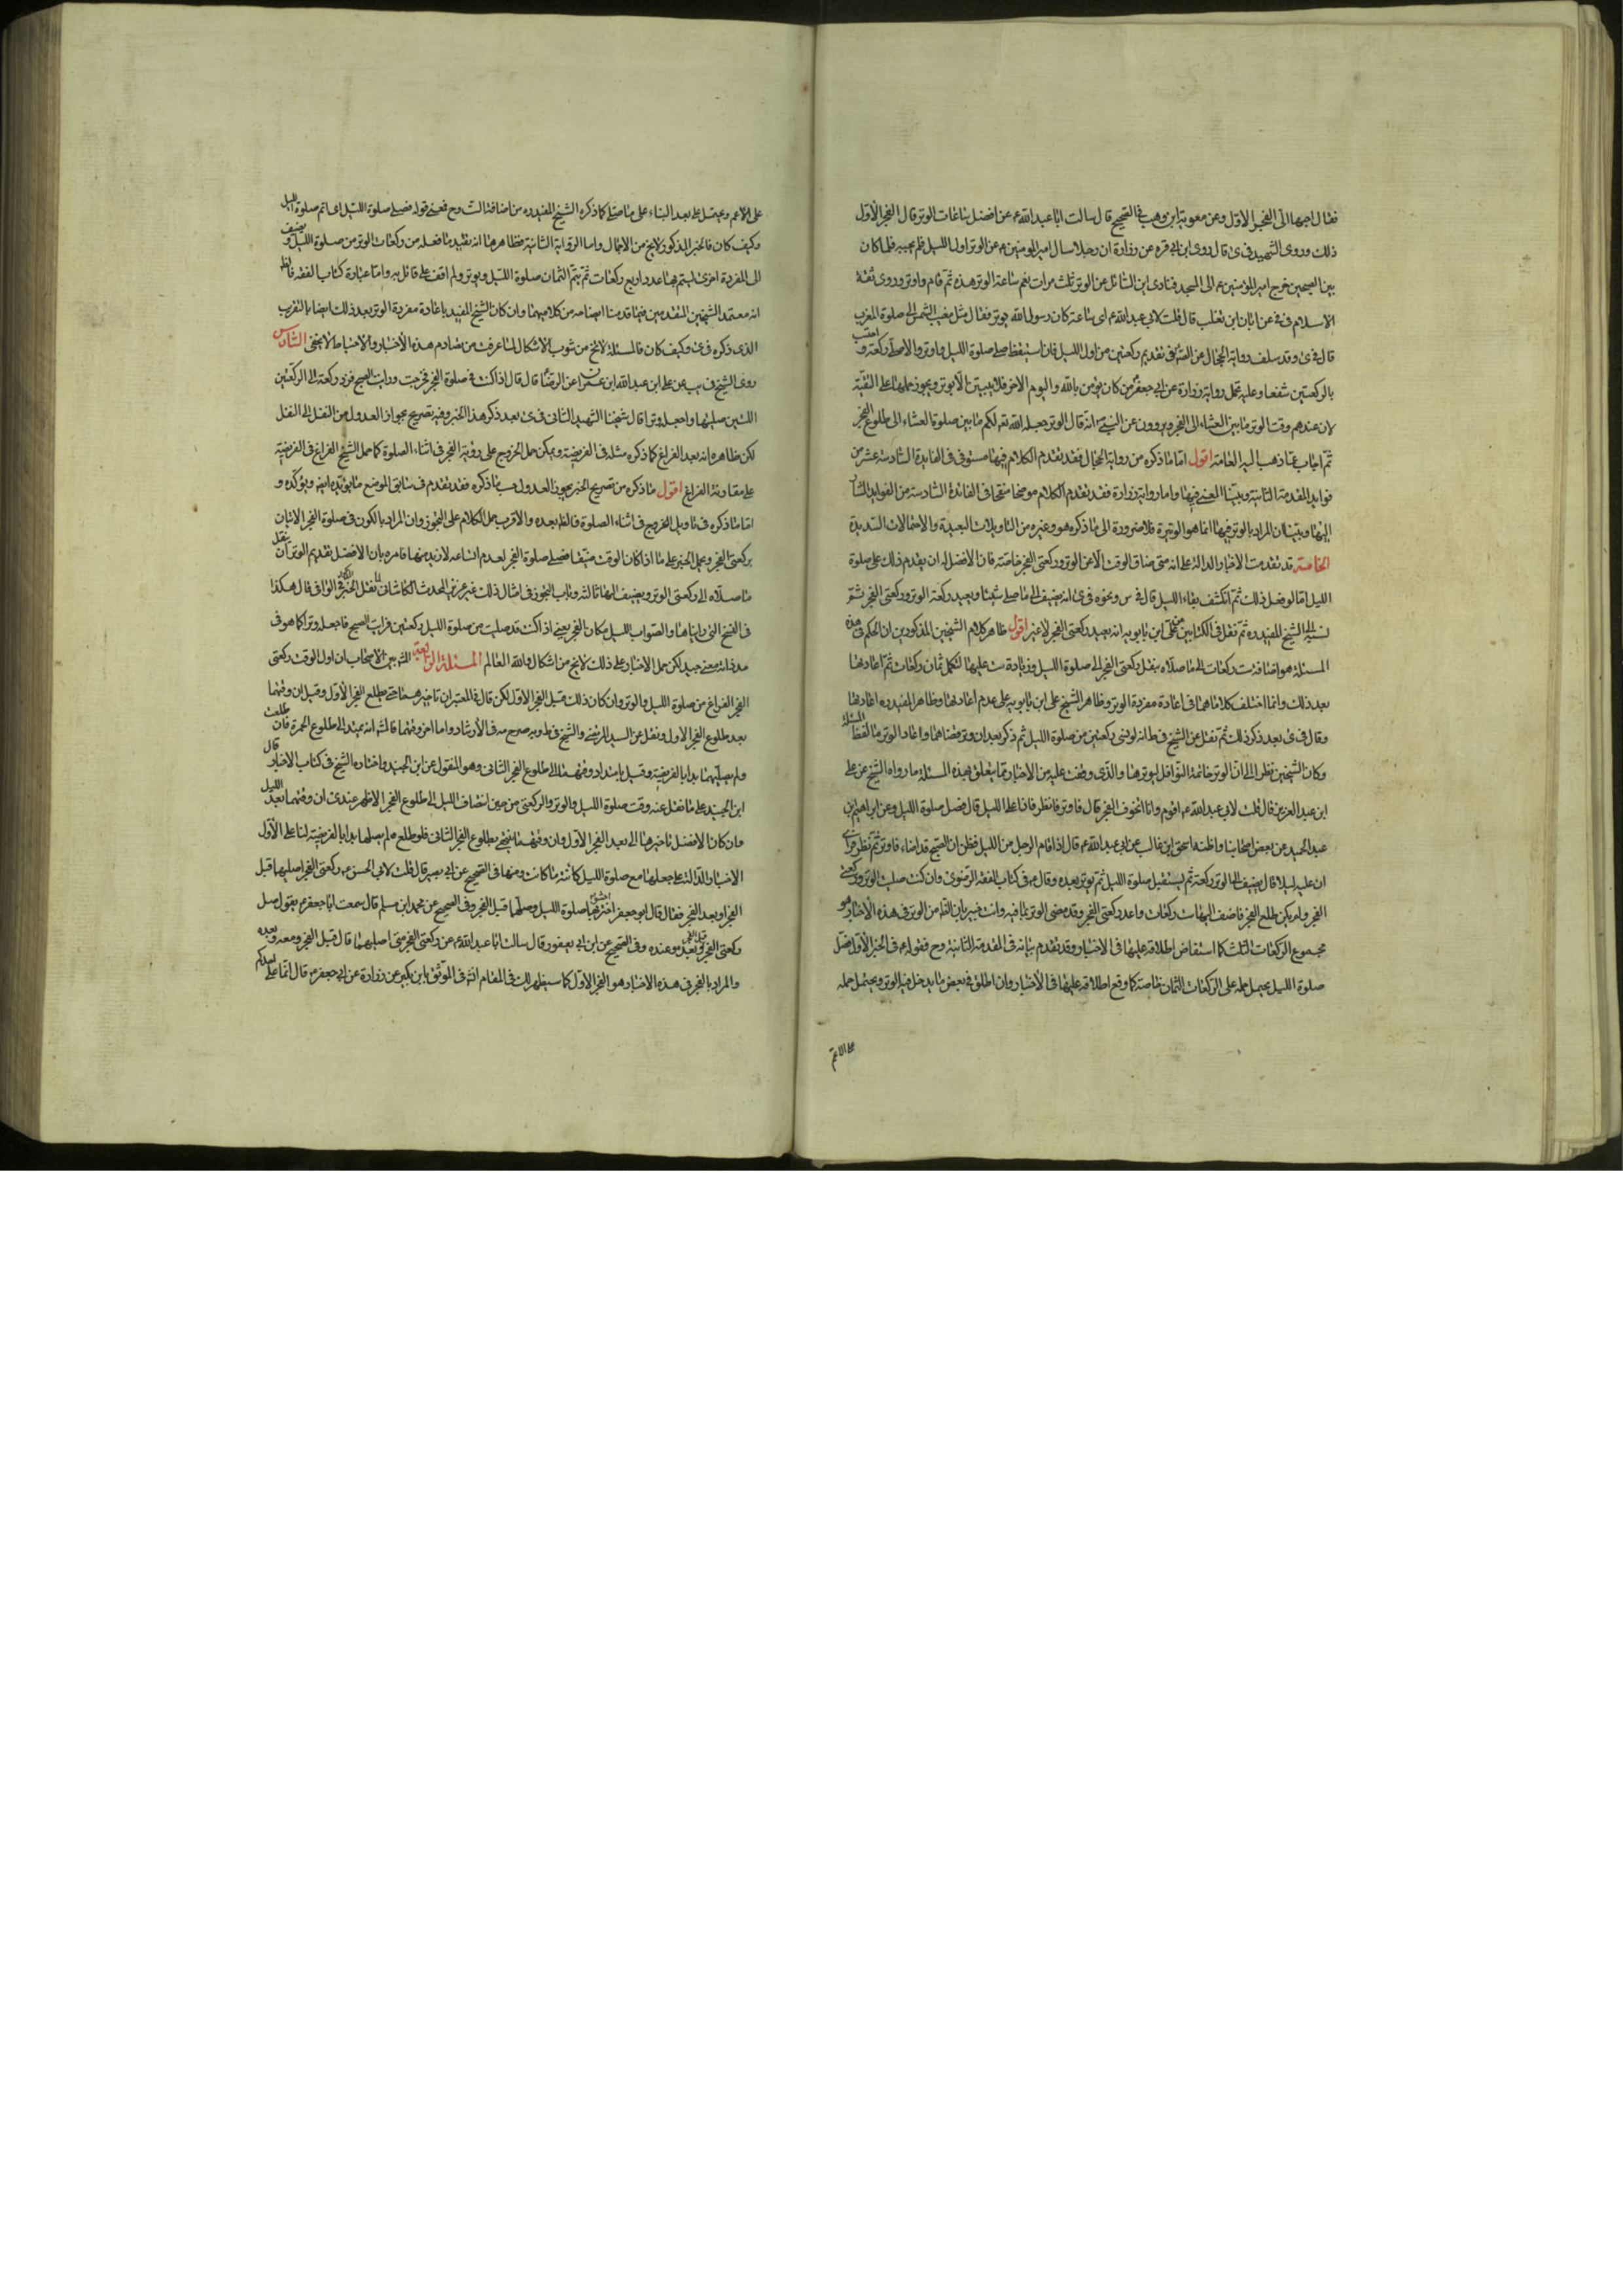 فقال احبها الى الفجر الاول وعن معوية ابن وهب في الصحيح قال سالت ابا عبد الله ع عن افضل ساعات الوتر قال الفجر الاول
ذلك وروى الشهيد في ى قال روى ابن ابي قرة عن زرارة ان رجلا سال امير المومنين ع عن الوتر اول الليل فلم يجبه فلما كان
بين الصبحين خرج امير المومنين ع الى المسجد فنادى اين السائل عن الوتر ثلث مرات نعم ساعة الوتر هذه ثم قام واوتر وروى ثقة
الاسلام في في عن ابان ابن تغلب قال قلت لابي عبد الله ع اى ساعة كان رسول الله يوتر فقال مثل مغيب الشمس الى صلوة المغرب
قال في ى وقد سلف رواية الحجال عن الص في تقديم ركعتين من اول الليل فان استيقظ صلى صلوة الليل واوتر والا صلى ركعة و احتسب
بالركعتين شفعا وعليه تحمل رواية زرارة عن ابي جعفر من كان يؤمن بالله واليوم الاخر فلا يبيتن الا بوتر ويجوز حملها على التقية
لان عندهم وقت الوتر ما بين العشاء الى الفجر ويروون عن النبي انه قال الوتر جعله الله تع لكم ما بين صلوة العشاء الى طلوع الفجر
ثم اجاب عما ذهب اليه العامة اقول اما ما ذكره من رواية الحجال فقد تقدم الكلام فيها مستوفى في الفايدة السادسة عشر من
فوايد المقدمة الثانية وبينا المعنى فيها واما رواية زرارة فقد تقدم الكلام موضحا منقحا في الفائدة السادسة من الفوايد المشار
اليها وبينا ان المراد بالوتر فيها انما هو الوتيرة فلا ضرورة الى ما ذكره هو وغيره من التاويلات البعيدة والاحتمالات الشديدة
الخامسة قد تقدمت الاخبار الدالة على انه متى ضاق الوقت الا عن الوتر وركعتي الفجر خاصة فان الافضل له ان يقدم ذلك على صلوة
الليل اما لو فعل ذلك ثم انكشف بقاء الليل قال في س ونحوه في ى انه يضيف الى ما صلى ستا ويعيد ركعة الوتر وركعتي الفجر ثم
نسبه الى الشيخ المفيد ره ثم نقل في الكتابين عن علي ابن بابويه انه يعيد ركعتي الفجر لا غير اقول ظاهر كلام الشيخين المذكورين ان الحكم في هذه
المسئلة هو اضافة ست ركعات الى ما صلاه بنقل ركعتي الفجر الى صلوة الليل وزيادة ست عليها لتكمل ثمان ركعات ثم اعادتها
بعد ذلك وانما اختلف كلاماهما في اعادة مفردة الوتر وظاهر الشيخ علي ابن بابويه على عدم اعادتها وظاهر المفيد ره اعادتها
وقال في ى بعد ذكر ذلك ثم نقل عن الشيخ في ط انه لو نسى ركعتين من صلوة الليل ثم ذكر بعد ان وتر قضاهما واعاد الوتر ما لفظه المسئلة
وكان الشيخين نظرا الى ان الوتر خاتمة النوافل ليوترها والذي وقفت عليه من الاخبار مما يتعلق بهذه المسئلة ما رواه الشيخ عن علي
ابن عبد العزيز قال قلت لابي عبد الله ع اقوم وانا اتخوف الفجر قال فاوتر فانظر فاذا على الليل قال فصل صلوة الليل وعن ابراهيم ابن
عبد الحميد عن بعض اصحابنا واظنه اسحق ابن غالب عن ابي عبد الله ع قال اذا قام الرجل من الليل فظن ان الصبح قد اضاء فاوتر ثم نظر فراى
ان عليه ليلا قال يضيف الى الوتر ركعة ثم يستقبل صلوة الليل ثم يوتر بعده وقال ع في كتاب الفقه الرضوي وان كنت صليت الوتر وركعتي
الفجر ولم يكن طلع الفجر فاضف اليها ست ركعات واعد ركعتي الفجر وقد مضى الوتر بما فيه وانت خبير بان الظاهر من الوتر في هذه الاخبار هو
مجموع الركعات الثلث كما استفاض اطلاقه عليها في الاخبار وقد تقدم بيانه في المقدمة الثانية وح فقوله ع في الخبر الاول فصل
صلوة الليل يحتمل حمله على الركعات الثمان خاصة كما وقع اطلاقه عليها في الاخبار وان اطلق في بعض ما يدخل فيه الوتر ويحتمل حمله
على الاعم
على الاعم ويحتمل على بعد البناء على ما صلى كما ذكره الشيخ المفيد ره من اضافة الست وح فمعنى قوله فصل صلوة الليل اى اتم صلوة الليل
وكيف كان فالخبر المذكور لايخ من الاجمال واما الرواية الثانية فظاهرها انه بتقييد ما فعله من ركعات الوتر من صلوة الليل و يضيف
الى المفردة اخرى ليتم بها عدد اربع ركعات ثم يتم الثمان صلوة الليل ويوتر ولم اقف على قائل به واما عبارة كتاب الفقه فالظ
انه معتمد الشيخين المتقدمين فيما قدمنا ايضاحه من كلاميهما وان كان الشيخ المفيد باعادة مفردة الوتر بعد ذلك ايضا بالتقريب
الذي ذكره في ى وكيف كان فالمسئلة لاتخ من شوب الاشكال لما عرفت من تصادم هذه الاخبار والاحتياط لا يخفى السادس
روى الشيخ في يب عن علي ابن عبد الله ابن عمران عن الرضا قال قال اذا كنت في صلوة الفجر فخرجت ورايت الصبح فزد ركعة الى الركعتين
اللتين صليتهما واجعله وترا قال شيخنا الشهيد الثاني في ى بعد ذكر هذا الخبر وفيه تصريح بجواز العدول من النفل الى النفل
لكن ظاهره انه بعد الفراغ كما ذكره مثله في الفريضة ويمكن حمل الخروج على رؤية الفجر في اثناء الصلوة كما حمل الشيخ الفراغ في الفريضة
على مقاربة الفراغ اقول ما ذكره من تصريح الخبر بجواز العدول حسب ما ذكره فقد تقدم في سابق الموضع ما يؤيده ايض ويؤكده و
اما ما ذكره في تاويل الخروج في اثناء الصلوة فالظ بعده والاقرب حمل الكلام على التجوز وان المراد بالكون في صلوة الفجر الاتيان
بركعتي الفجر ويحمل الخبر على ما اذا كان الوقت ضيقا فصلى صلوة الفجر لعدم اتساعه لازيد منها فامره بان الافضل تقديم الوتر ان ينقل
ما صلاه الى ركعتي الوتر ويضيف اليها ثالثة وباب التجوز في امثال ذلك غير عزيز المحدث الكاشاني نقل الخبر المذكور في الوافي قال هكذا
في النسخ التي رايناها والصواب الليل مكان الفجر يعني اذا كنت قد صليت من صلوة الليل ركعتين فرايت الصبح فاجعله وترا كما هو في
مد فانه معنى جيد لكن حمل الاخبار على ذلك لايخ من اشكال والله العالم المسئلة الرابعة المشهور بين الاصحاب ان اول الوقت ركعتي
الفجر الفراغ من صلوة الليل والوتر وان كان ذلك قبل الفجر الاول لكن قال في المعتبر ان تاخيرهما حتى يطلع الفجر الاول وقيل ان وقتهما
بعد طلوع الفجر الاول ونقل عن السيد المرتضى والشيخ في ط وبه صرح مه في الارشاد واما اخر وقتهما فالمشهور انه يمتد الى طلوع الحمرة فان طلعت
ولم يصليهما بدا بالفريضة وقيل بامتداد وقتهما الى طلوع الفجر الثاني وهو المنقول عن ابن الجنيد واختاره الشيخ في كتاب الاخبار قال
ابن الجنيد على ما نقل عنه وقت صلوة الليل والوتر والركعتين من حين انتصاف الليل الى طلوع الفجر الاظهر عندي ان وقتهما بعد الليل
وان كان الافضل تاخيرهما الى بعد الفجر الاول وان وقتهما ينتهي بطلوع الفجر الثاني فلو طلع ولم يصلهما بدا بالفريضة لنا على الاول
الاخبار الدالة على جعلها مع صلوة الليل كائنة ما كانت ومنها في الصحيح عن ابي بصير قال قلت لابي الحسن ع وركعتي الفجر اصليهما قبل
الفجر او بعد الفجر فقال قال ابو جعفر احش بهما صلوة الليل وصلهما قبل الفجر وفي الصحيح عن محمد ابن مسلم قال سمعت ابا جعفر ع يقول صل
ركعتي الفجر قبل الفجر وبعده وعنده وفي الصحيح عن ابن ابي يعفور قال سالت ابا عبد الله ع عن ركعتي الفجر متى اصليهما قال قبل الفجر ومعه وبعده
والمراد بالفجر في هذه الاخبار هو الفجر الاول كما سيظهر لك في المقام انش في الموثق بابن بكير عن زرارة عن ابي جعفر ع قال انما على احدكم